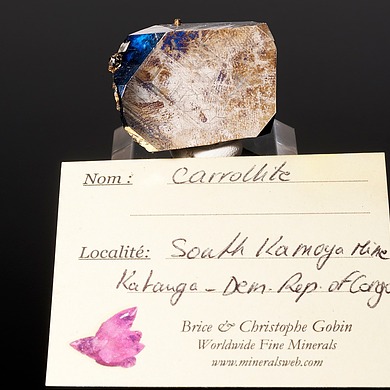 Nom: Carrollite
Localité: South Kamoya Mine
Katanga - Dem. Rep. of Congo
Brice & Christophe Gobin
Worldwide Fine Minerals
www.mineralsweb.com